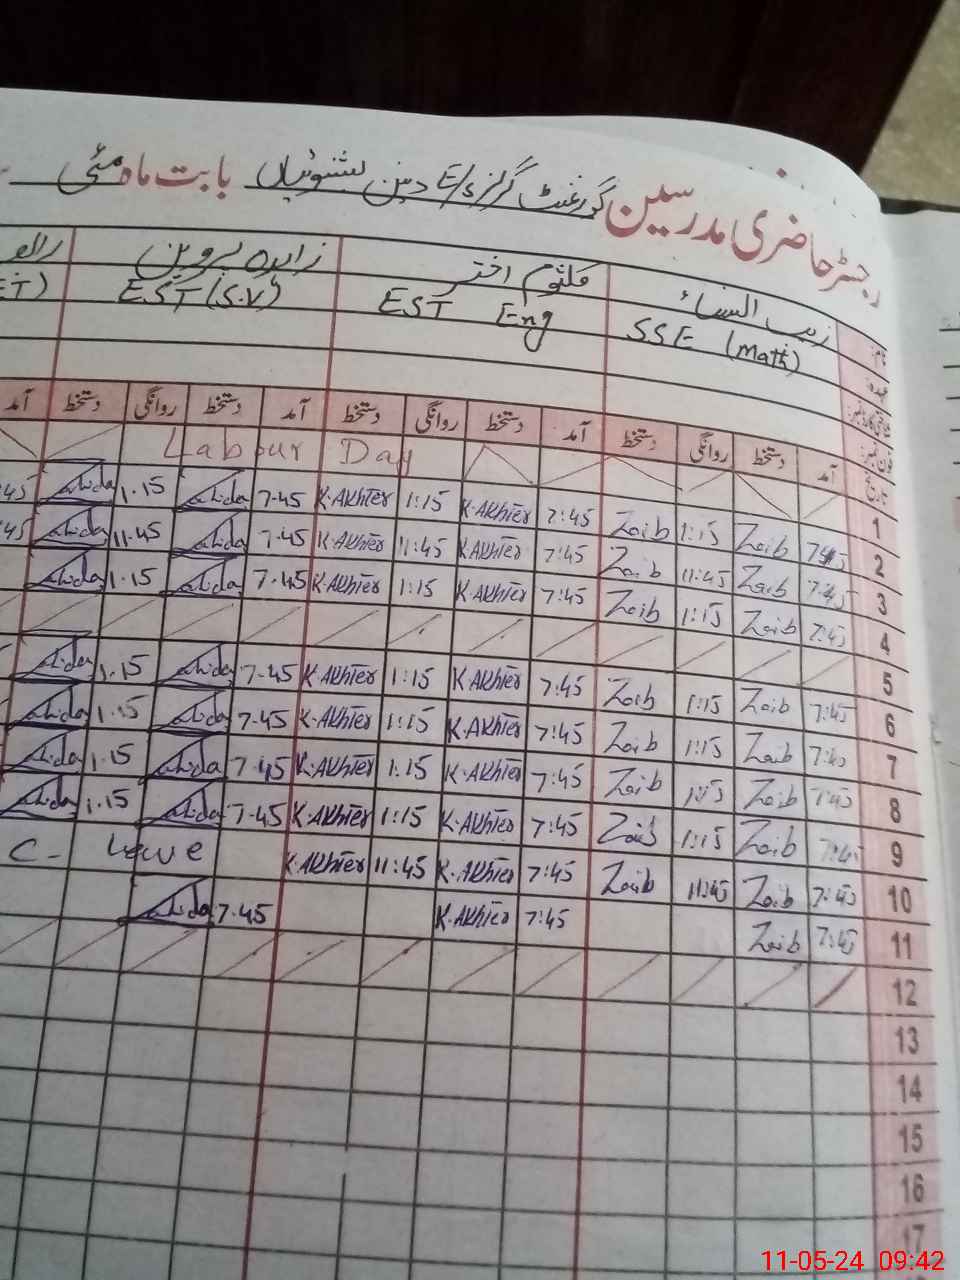 رجسٹر حاضری مدرسین گورنمنٹ گرلز E/S بابت ماہ مئی
نام: زیب النساء کلثوم اختر زاہدہ پروین
عہدہ: SSE (Math) EST Eng EST (S.V) ET)
شناختی کارڈ نمبر:
فون نمبر:
تاریخ آمد دستخط روانگی دستخط آمد دستخط روانگی دستخط آمد دستخط روانگی دستخط آمد
1 Labour Day
2 7:45 Zaib 1:15 Zaib 7:45 K.Akhter 1:15 K.Akhter 7.45 Zahida 1.15 Zahida 45
3 7:45 Zaib 11:45 Zaib 7:45 K.Akhter 11:45 K.Akhter 7.45 Zahida 11.45 Zahida 45
4 7:45 Zaib 1:15 Zaib 7:45 K.Akhter 1:15 K.Akhter 7.45 Zahida 1.15 Zahida
5
6 7:45 Zaib 1:15 Zaib 7:45 K.Akhter 1:15 K.Akhter 7.45 Zahida 1.15 Zahida
7 7:45 Zaib 1:15 Zaib 7:45 K.Akhter 1:15 K.Akhter 7.45 Zahida 1.15 Zahida
8 7:45 Zaib 1:15 Zaib 7:45 K.Akhter 1:15 K.Akhter 7.45 Zahida 1.15 Zahida
9 7:45 Zaib 1:15 Zaib 7:45 K.Akhter 1:15 K.Akhter 7.45 Zahida 1.15 Zahida
10 7:45 Zaib 11:45 Zaib 7:45 K.Akhter 11:45 K.Akhter C- Leave
11 7:45 Zaib 7:45 K.Akhter 7.45 Zahida
12
13
14
15
16
17
11-05-24 09:42